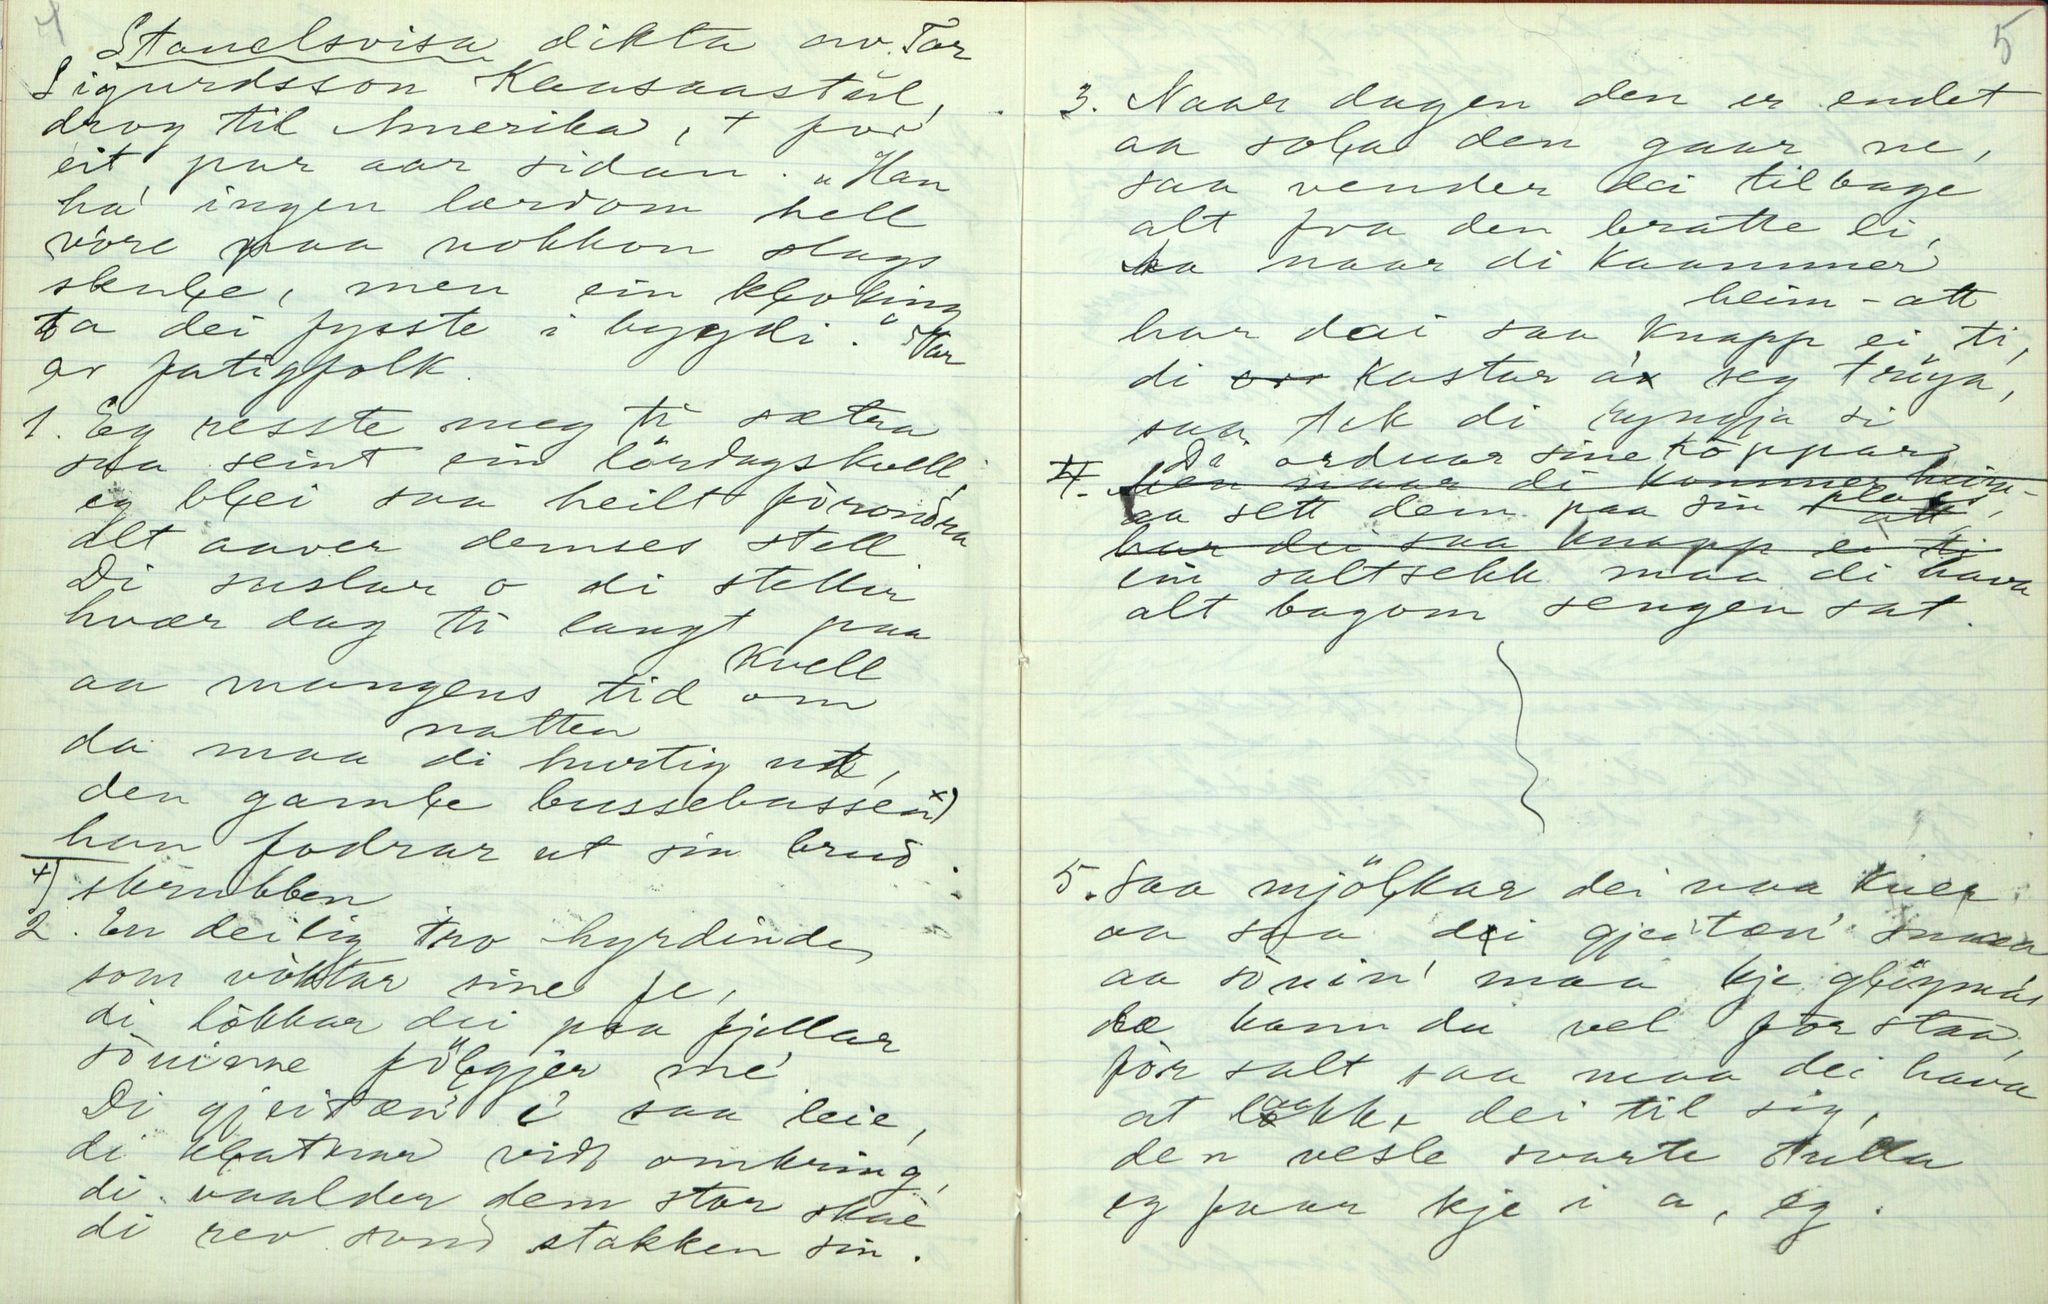 4
Stauelsvisa dikta av Tor
Sigurdsson Kaasaastül,
drog til Amerika, + for
eit par aar sidan. "Han
ha' ingen lærdom hell
vöre paa nokkon slags
skule, men ein kloking
ta dei fysste i bygdi." Var
av fatigfolk.
1. Eg resste meg ti sætra
saa seint ein lördagskvell,
eg blei saa heilt forondra
alt aaver demses stell
Di suslar o di stellir
hvær dag ti langt paa
kvell
aa mangens tid om
natten
da maa di hurtig ut,
den gamle bussebassen x)
han fodrar ut sin brud.
x) skrubben
2. En deilig tro hyrdinde,
som vöktar sine fe,
di lökkar dei paa fjellar
söuinne fölgjer me'
Di gjeitæn' e' saa leie,
di klatrar vidt omkring,
di vaalder dem stor skae
di rev sond stakken sin.
5
3. Naar dagen den er endet
aa sola den gaar ne,
saa vender dei tilbage
alt fra den bratte li,
aa naar di kaammer
heim-att
har dai saa knapp ei ti,
di kastar a seg tröya,
saa fek di ryngja si
4. Di ordnar sine köppar
Men naar di kommer heim-
aa sett dem paa sin plass,
att
har dei saa knapp ei ti
ein saltsekk maa di hava
alt bagom sengen sat.
5. Saa mjölkar dei naa kuer
aa saa dei gjeitæn' smaa
aa söuin' maa kje glöymas
de kann du vel forstaa,
for salt saa maa dei hava
at laakke dei til sig,
den vesle svarte studda
eg faar kje i a, eg.